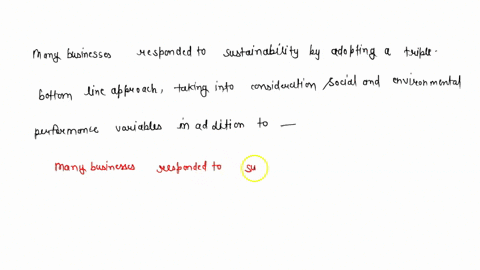 Many businesses responded to sustainability by adopting a triple-
bottom line approach, taking into consideration /social and environmental
performance variables in addition to —
Many businesses responded to su